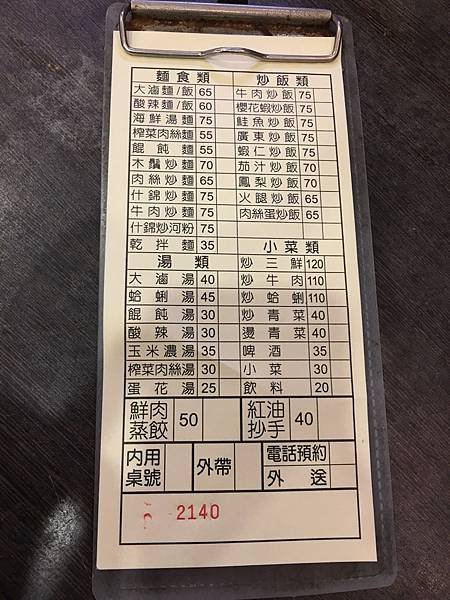 麵食類 炒飯類
大滷麵/飯 65 牛肉炒飯 75
酸辣麵/飯 60 櫻花蝦炒飯 75
海鮮湯麵 75 鮭魚炒飯 75
榨菜肉絲麵 55 廣東炒飯 75
餛飩麵 55 蝦仁炒飯 75
木鬚炒麵 70 茄汁炒飯 70
肉絲炒麵 65 鳳梨炒飯 70
什錦炒麵 75 火腿炒飯 65
牛肉炒麵 75 肉絲蛋炒飯 65
什錦炒河粉 75
乾拌麵 35 小菜類
湯類 炒三鮮 120
大滷湯 40 炒牛肉 110
蛤蜊湯 45 炒蛤蜊 110
餛飩湯 30 炒青菜 40
酸辣湯 30 燙青菜 40
玉米濃湯 35 啤酒 35
榨菜肉絲湯 30 小菜 30
蛋花湯 25 飲料 20
鮮肉蒸餃 50 紅油抄手 40
內用桌號 外帶 電話預約
外送
2140